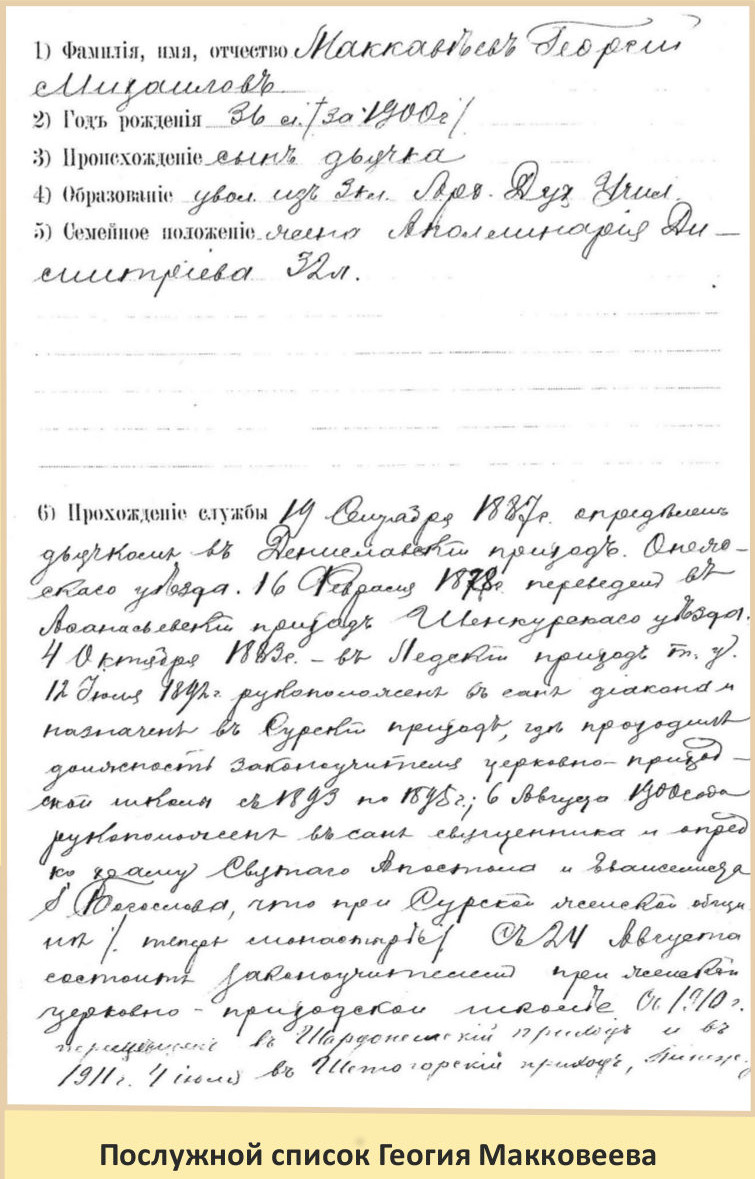 1) Фамилія, имя, отчество Маккавѣевъ Георгій
Михаиловъ
2) Годъ рожденія 36 л. /за 1900г/
3) Происхожденіе сынъ дьячка
4) Образованіе увол. изъ 3кл. Арх. Дух Учил
5) Семейное положеніе жена Аполлинарія Ди–
митріева 32л.
6) Прохожденіе службы 19 Сентября 1887г. опредѣленъ
дьячкомъ въ Дениславскій приходъ. Онеж–
скаго уѣзда. 16 Февраля переведенъ въ
Афанасьевскій приходъ Шенкурскаго уѣзда.
4 Октября 1883г. – въ Ледскій приходъ т. у.
12 Іюля 1892г. рукоположенъ въ санъ діакона и
назначенъ въ Сурскій приходъ, гдѣ проходилъ
должность законоучителя церковно–приход–
ской школы съ 1893 по 1895г.; 6 Августа 1900 года
рукоположенъ въ санъ священника и опред
ко храму Святаго Апостола и Евангелиста
Богослова, что при Сурской женской общи
нѣ /. теперь монастырь/ Съ 24 Августа
состоитъ законоучителемъ при женской
церковно – приходской школѣ. Съ 1910 г.
перемѣщенъ въ Шардонемскій приходъ и въ
1911 г. 4 іюля въ Шотогорскій приходъ, Пинеж.
Послужной список Геогия Макковеева